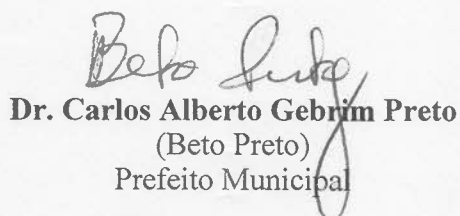 Beto Preto
Dr. Carlos Alberto Gebrim Preto
(Beto Preto)
Prefeito Municipal